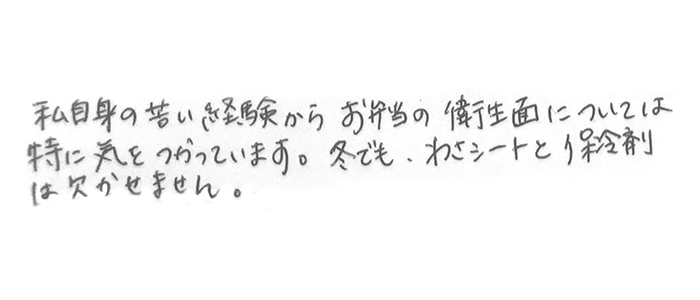 私自身の苦い経験からお弁当の衛生面については
特に気をつかっています。冬でも、わさシートと保冷剤
は欠かせません。